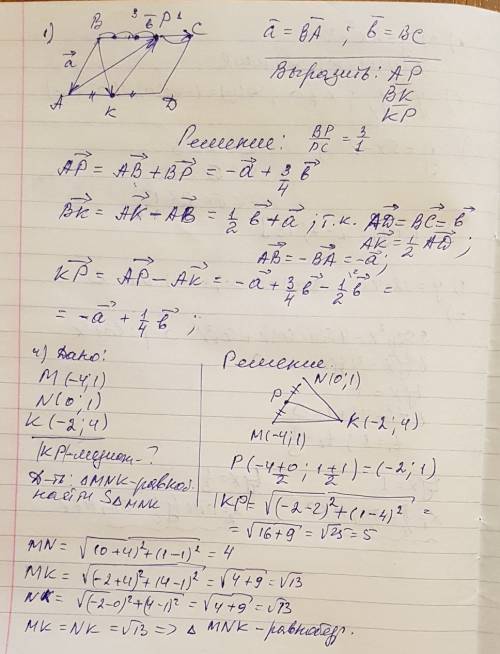 1)
B 3 b̅ P 1 C
a⃗
A K D
a̅ = B̅A̅ ; b̅ = B̅C̅
Выразить: A̅P̅
B̅K̅
K̅P̅
Решение: BP/PC = 3/1
AP⃗ = AB⃗ + BP⃗ = -a⃗ + 3/4 b⃗
BK⃗ = AK⃗ - AB⃗ = 1/2 b⃗ + a⃗ ; т.к. AD⃗ = BC⃗ = b⃗
AK⃗ = 1/2 AD⃗ ;
AB⃗ = -BA⃗ = -a⃗ ;
KP⃗ = AP⃗ - AK⃗ = -a⃗ + 3/4 b⃗ - 1/2 b⃗ =
= -a⃗ + 1/4 b⃗ ;
4) Дано:
M(-4;1)
N(0;1)
K(-2;4)
|KP|-медиан-?
Д-ть: △MNK-равноб.
найти S△MNK
Решение.
N(0;1)
P
K(-2;4)
M(-4;1)
P(-4+0/2 ; 1+1/2) = (-2;1)
|KP| = √(-2-2)²+(1-4)² =
= √16+9 = √25 = 5
MN = √(0+4)²+(1-1)² = 4
MK = √(-2+4)²+(4-1)² = √4+9 = √13
NK = √(-2-0)²+(4-1)² = √4+9 = √13
MK = NK = √13 => △ MNK - равнобедр.